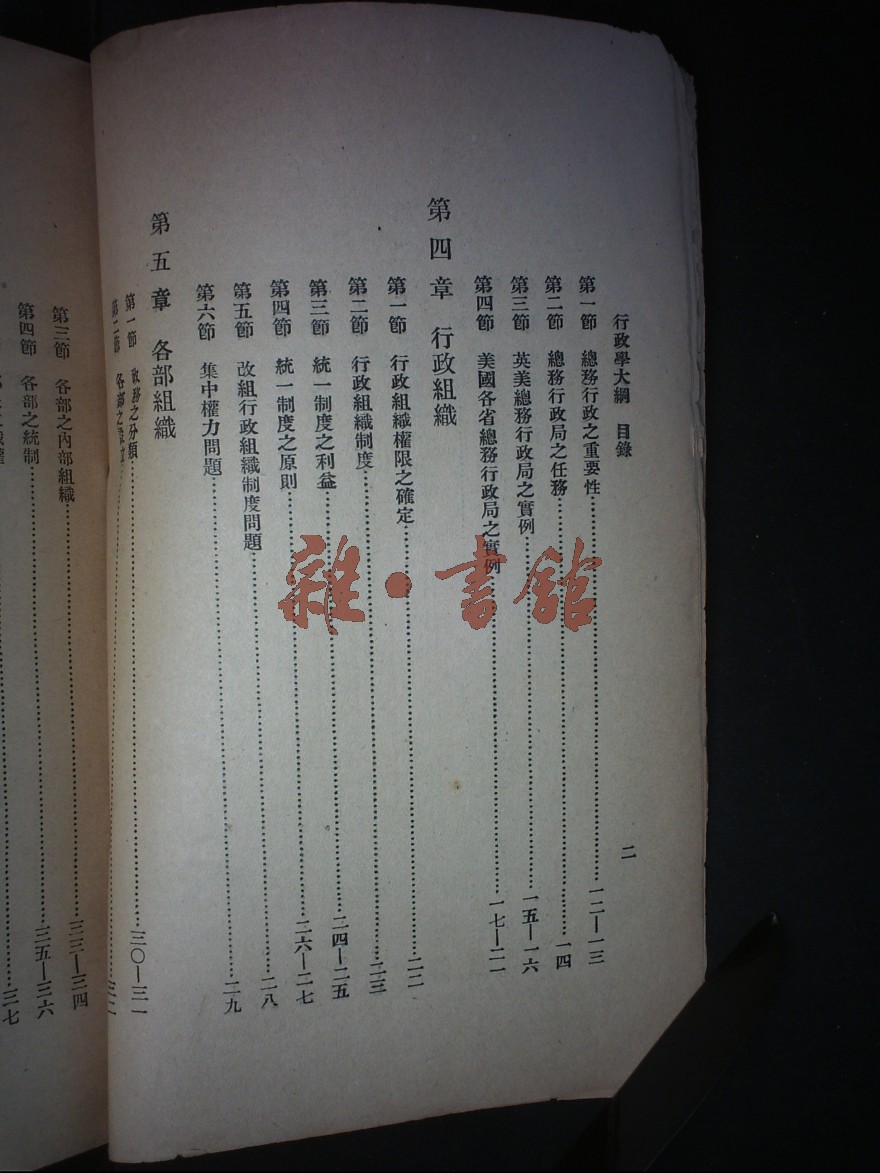 行政學大綱 目錄 二
第一節 總務行政之重要性 一二—一三
第二節 總務行政局之任務 一四
第三節 英美總務行政局之實例 一五—一六
第四節 美國各省總務行政局之實例 一七—二一
第四章 行政組織
第一節 行政組織權限之確定 二二
第二節 行政組織制度 二三
第三節 統一制度之利益 二四—二五
第四節 統一制度之原則 二六—二七
第五節 改組行政組織制度問題 二八
第六節 集中權力問題 二九
第五章 各部組織
第一節 政務之分類 三〇—三一
第二節 各部之
第三節 各部之內部組織 三三—三四
第四節 各部之統制 三五—三六
三七
雜·書館